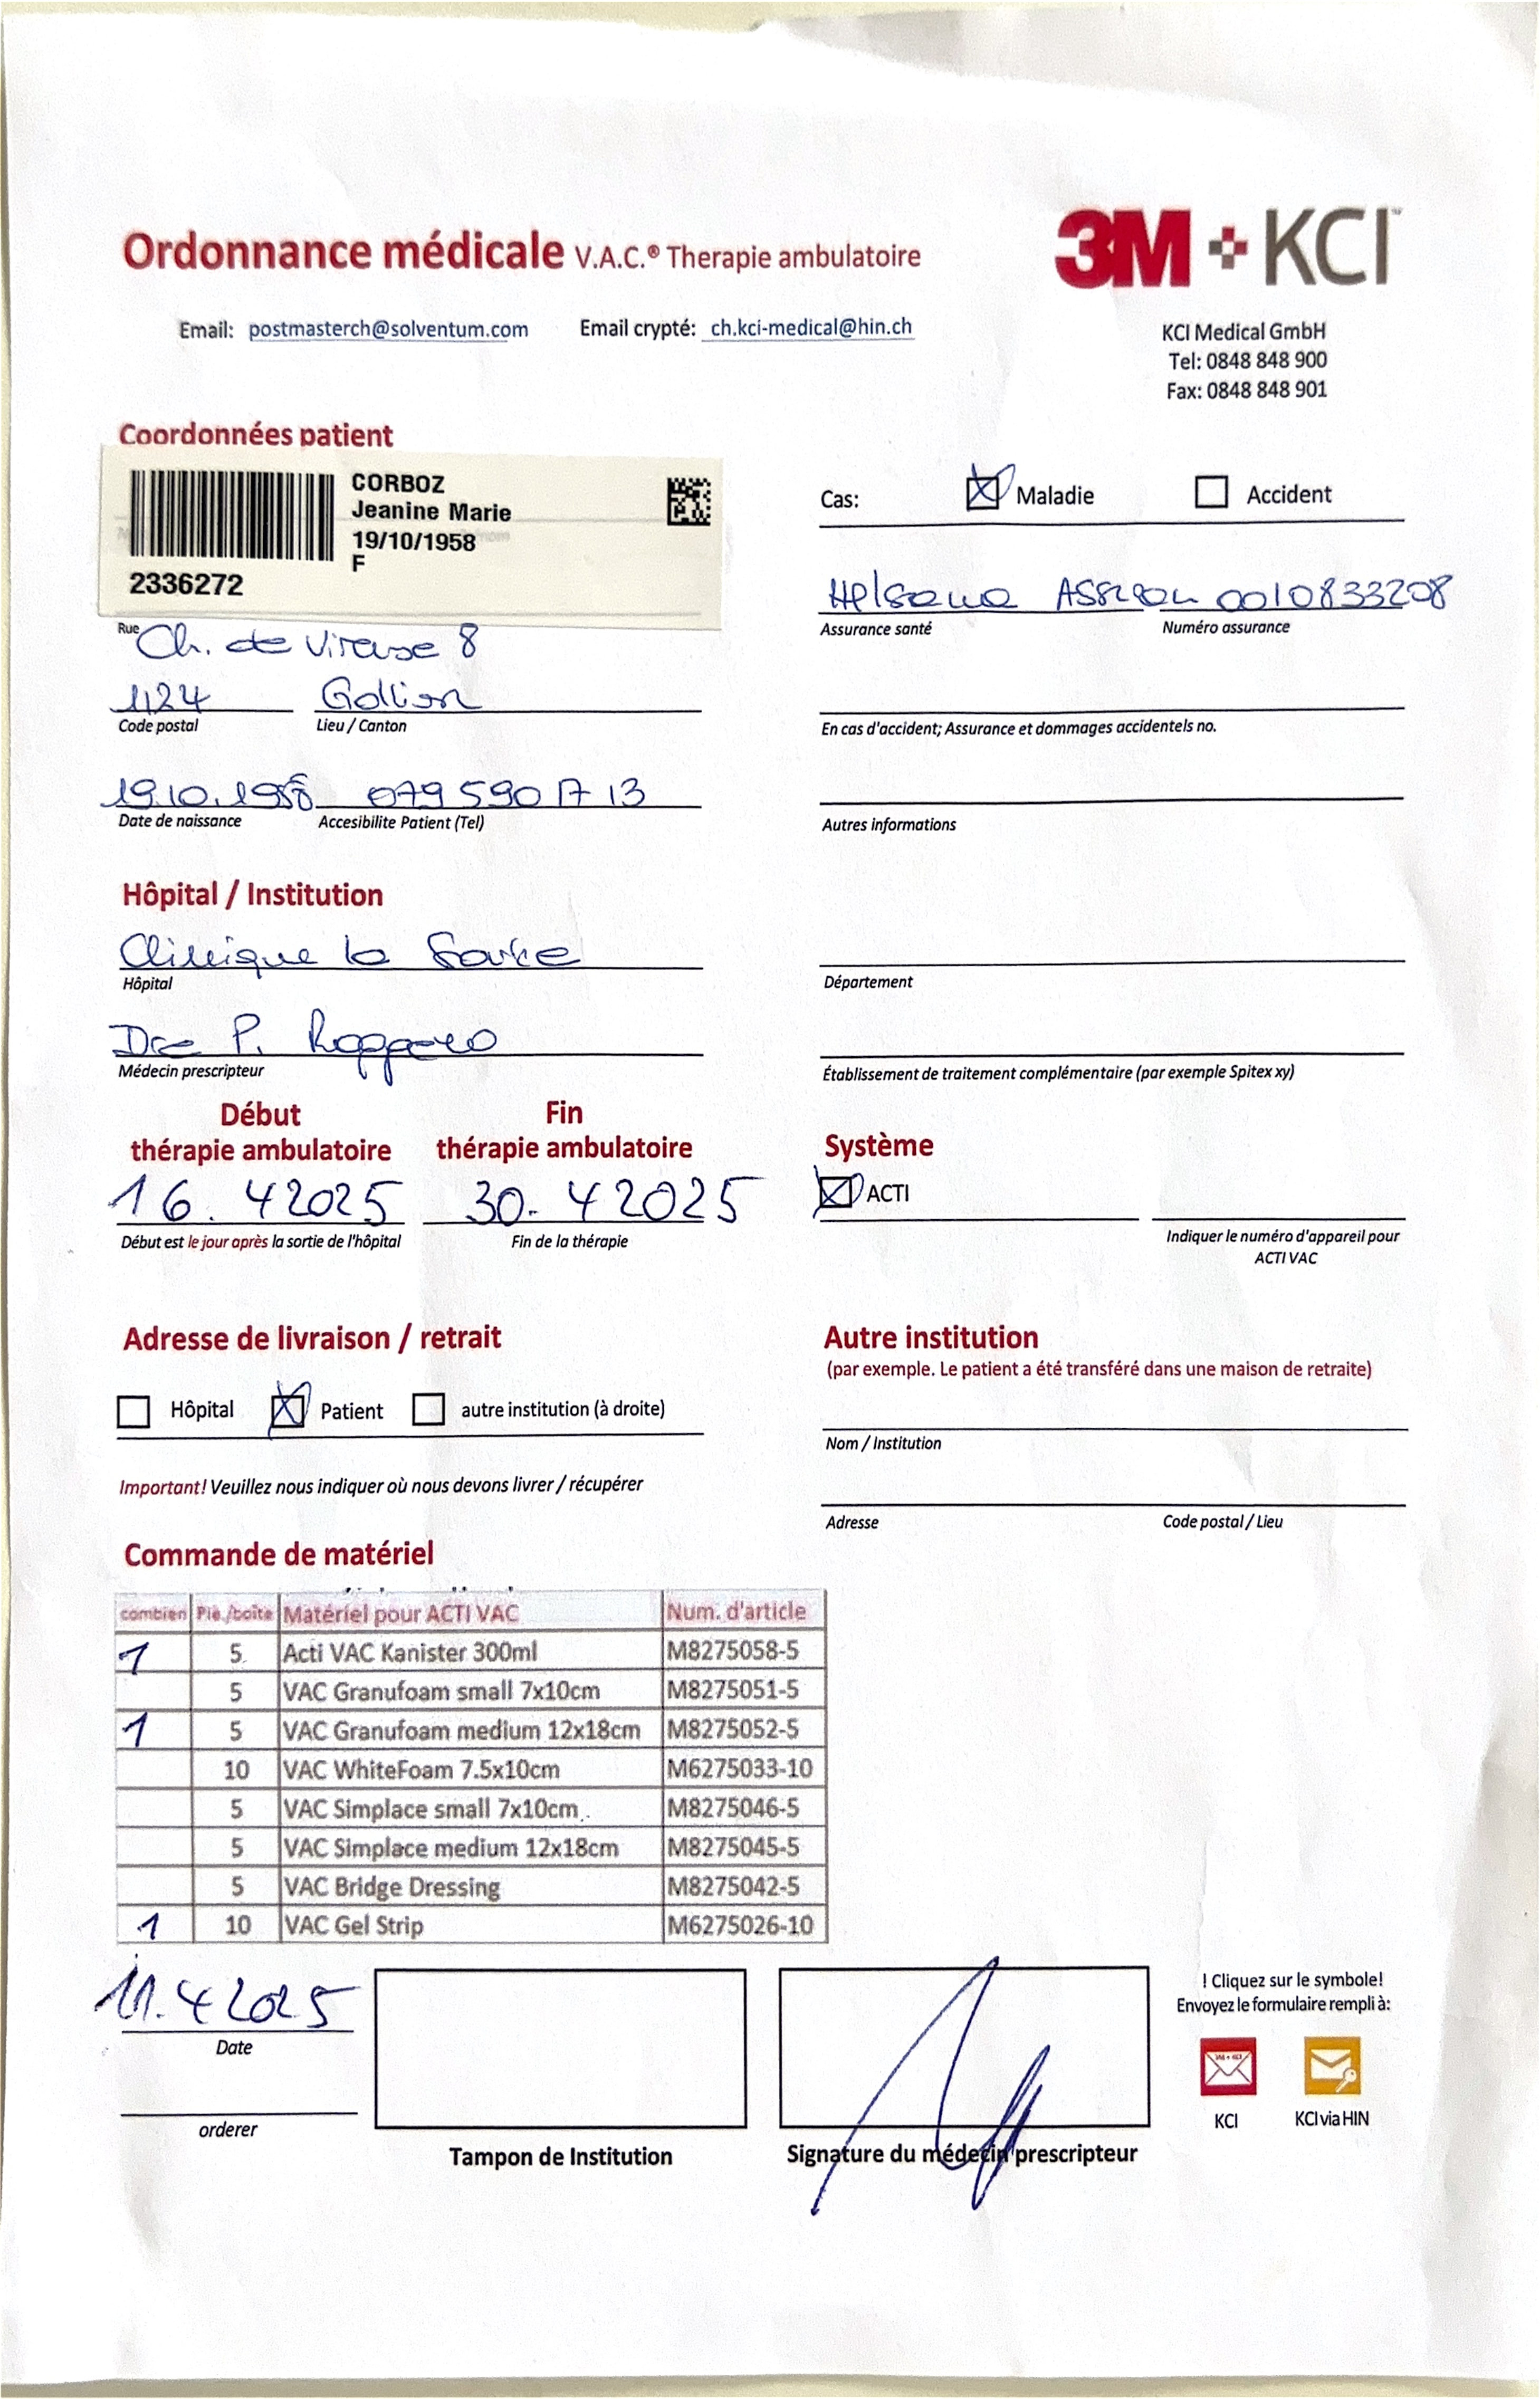 Ordonnance médicale V.A.C.® Therapie ambulatoire
3M + KCI™
Email: postmasterch@solventum.com Email crypté: ch.kci-medical@hin.ch
KCI Medical GmbH
Tel: 0848 848 900
Fax: 0848 848 901
Coordonnées patient
CORBOZ
Jeanine Marie
19/10/1958
F
2336272
Rue Ch. de 8
1124 Gollion
Code postal Lieu / Canton
19.10.1958 079 590 17 13
Date de naissance Accesibilite Patient (Tel)
Cas: Maladie Accident
Helsana 0010833208
Assurance santé Numéro assurance
En cas d'accident; Assurance et dommages accidentels no.
Autres informations
Hôpital / Institution
Clinique la Source
Hôpital
Dre P. Roggero
Médecin prescripteur
Département
Établissement de traitement complémentaire (par exemple Spitex xy)
Début
thérapie ambulatoire
16. 4 2025
Début est le jour après la sortie de l'hôpital
Fin
thérapie ambulatoire
30. 4 2025
Fin de la thérapie
Système
ACTI
Indiquer le numéro d'appareil pour
ACTI VAC
Adresse de livraison / retrait
Hôpital Patient autre institution (à droite)
Important! Veuillez nous indiquer où nous devons livrer / récupérer
Autre institution
(par exemple. Le patient a été transféré dans une maison de retraite)
Nom / Institution
Adresse Code postal / Lieu
Commande de matériel
combien Piè./boîte Matériel pour ACTI VAC Num. d'article
1 5 Acti VAC Kanister 300ml M8275058-5
5 VAC Granufoam small 7x10cm M8275051-5
1 5 VAC Granufoam medium 12x18cm M8275052-5
10 VAC WhiteFoam 7.5x10cm M6275033-10
5 VAC Simplace small 7x10cm M8275046-5
5 VAC Simplace medium 12x18cm M8275045-5
5 VAC Bridge Dressing M8275042-5
1 10 VAC Gel Strip M6275026-10
11.4 2025
Date
orderer
Tampon de Institution
Signature du médecin prescripteur
! Cliquez sur le symbole!
Envoyez le formulaire rempli à:
KCI KCI via HIN